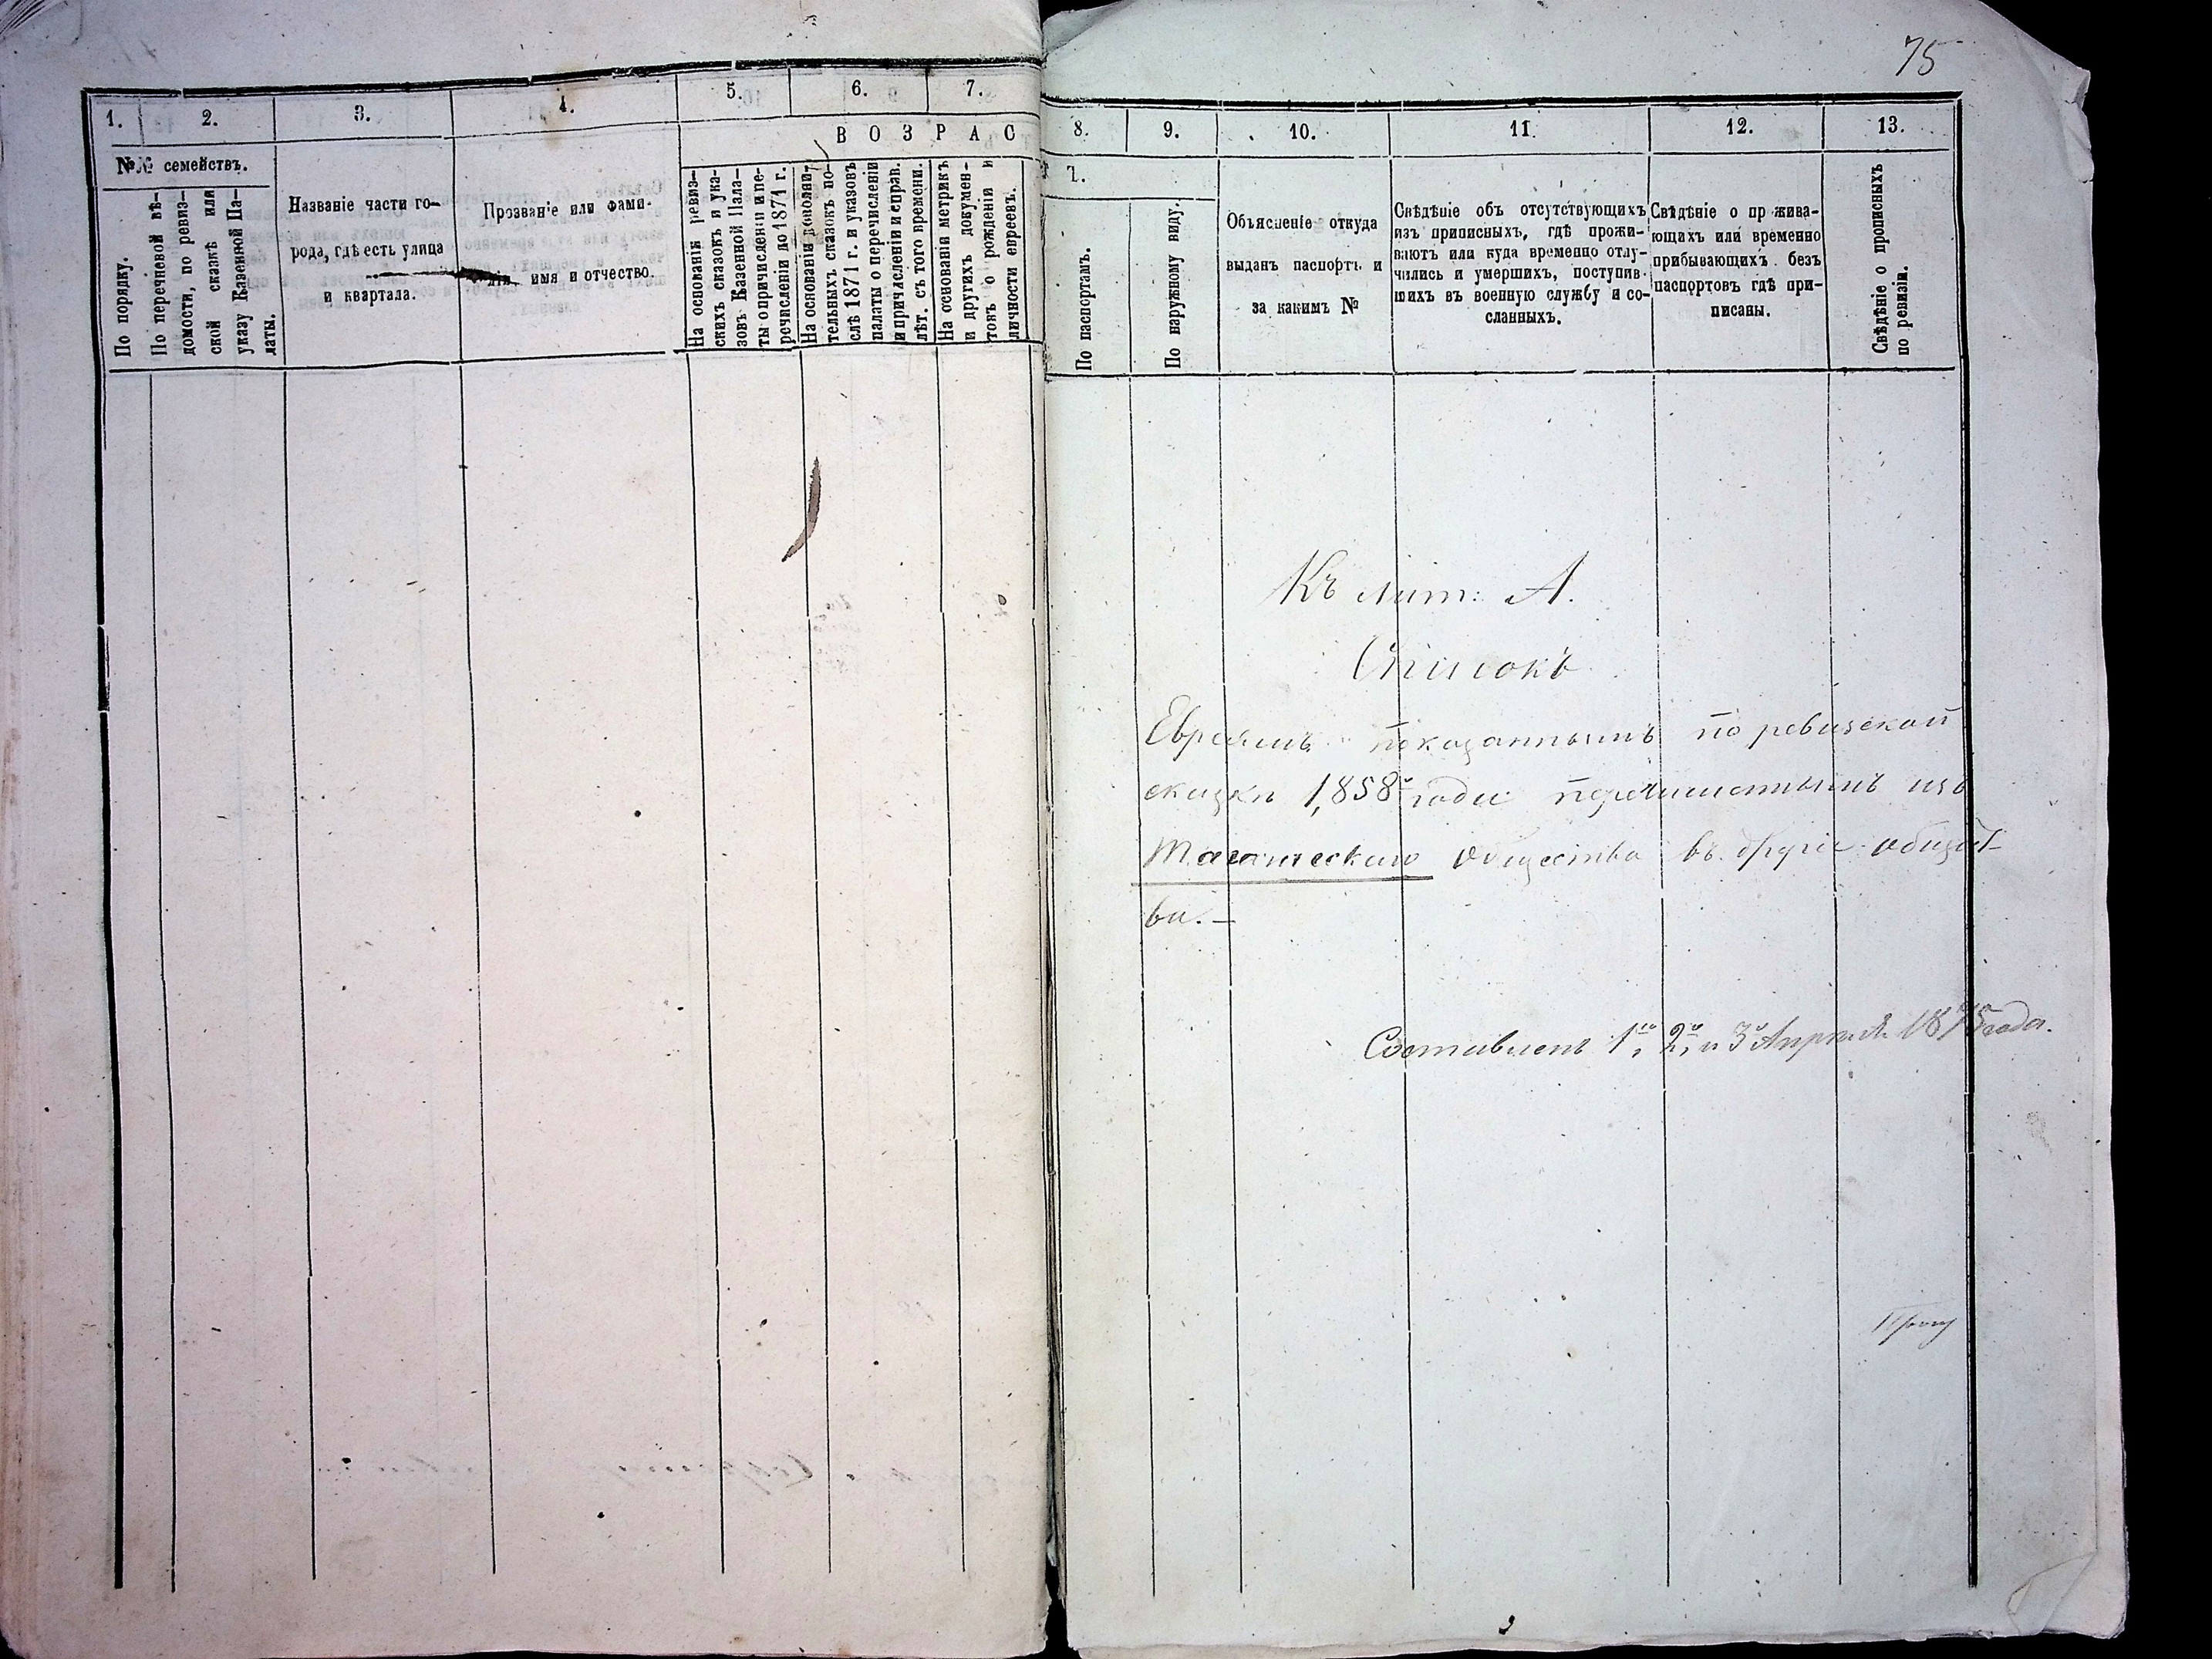 75
1.
2.
3.
4.
5.
6.
7.
ВОЗРАС
№№ семействъ.
По порядку.
По перечневой вѣ-
домости, по ревиз-
ской сказкѣ или
указу Казенной Па-
латы.
Названіе части го-
рода, гдѣ есть улица
и квартала.
Прозваніе или фами-
лія, имя и отчество.
На основаніи ревиз-
скихъ сказокъ и ука-
зовъ Казенной Пала-
ты о причисленіи и пе-
речисленіи до 1871 г.
На основаніи дополни-
тельныхъ сказокъ по-
слѣ 1871 г. и указовъ
палаты о перечисленіи
и причисленіи и справ.
лѣт. съ того времени.
На основаніи метрикъ
и другихъ докумен-
товъ о рожденіи и
личности евреевъ.
8.
9.
10.
11.
12.
13.
Т.
По паспортамъ.
По наружному виду.
Объясненіе откуда
выданъ паспортъ и
за какимъ №
Свѣдѣніе объ отсутствующихъ
изъ приписныхъ, гдѣ прожи-
ваютъ или куда временно отлу-
чились и умершихъ, поступив-
шихъ въ военную службу и со-
сланныхъ.
Свѣдѣніе о прожива-
ющихъ или временно
прибывающихъ безъ
паспортовъ гдѣ при-
писаны.
Свѣдѣніе о прописныхъ
по ревизіи.
Къ лит: А.
Списокъ
Евреямъ показаннымъ по ревизской
сказкѣ 1858 года перечисленнымъ изъ
общества въ другіе общест-
ва.—
Составленъ 1го, 2го и 3го Апрѣля 1875 года.